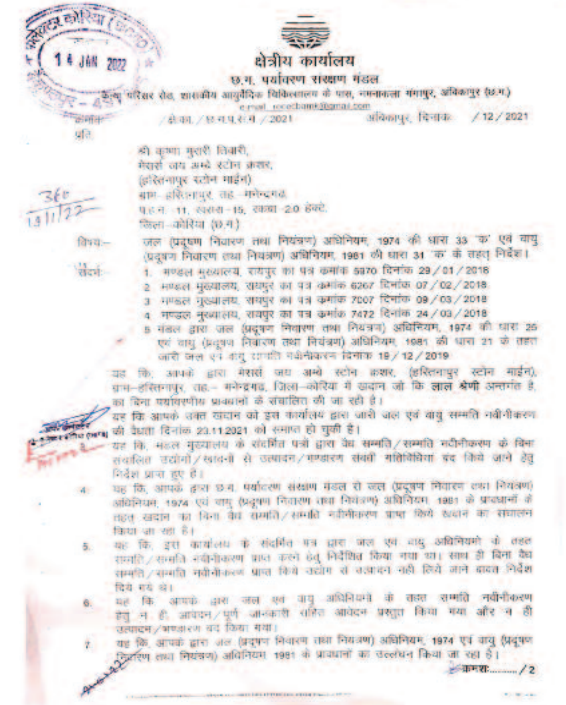 कलेक्टर कोरिया
14 JAN 2022
क्षेत्रीय कार्यालय
छ.ग. पर्यावरण संरक्षण मंडल
परिसर रोड, शासकीय आयुर्वेदिक चिकित्सालय के पास, नमनाकला गंगापुर, अंबिकापुर (छ.ग.)
क्रमांक /क्षे.का./छ.ग.प.सं.मं./2021 अंबिकापुर, दिनांक /12/2021
प्रति,
श्री कृष्णा मुरारी तिवारी,
मेसर्स जय अम्बे स्टोन क्रशर,
(हस्तिनापुर स्टोन माईन)
ग्राम-हस्तिनापुर, तह.-मनेन्द्रगढ़,
प.ह.न.-11, खसरा-15, रकबा-2.0 हेक्टे.
जिला-कोरिया (छ.ग.)
360
19/1/22
विषय:- जल (प्रदूषण निवारण तथा नियंत्रण) अधिनियम, 1974 की धारा 33 'क' एवं वायु
(प्रदूषण निवारण तथा नियंत्रण) अधिनियम, 1981 की धारा 31 'क' के तहत् निर्देश।
संदर्भ:- 1. मण्डल मुख्यालय, रायपुर का पत्र क्रमांक 5970 दिनांक 29/01/2018
2. मण्डल मुख्यालय, रायपुर का पत्र क्रमांक 6267 दिनांक 07/02/2018
3. मण्डल मुख्यालय, रायपुर का पत्र क्रमांक 7007 दिनांक 09/03/2018
4. मण्डल मुख्यालय, रायपुर का पत्र क्रमांक 7472 दिनांक 24/03/2018
5. मंडल द्वारा जल (प्रदूषण निवारण तथा नियंत्रण) अधिनियम, 1974 की धारा 25
एवं वायु (प्रदूषण निवारण तथा नियंत्रण) अधिनियम, 1981 की धारा 21 के तहत
जारी जल एवं वायु सम्मति नवीनीकरण दिनांक 19/12/2019
यह कि, आपके द्वारा मेसर्स जय अम्बे स्टोन क्रशर, (हस्तिनापुर स्टोन माईन),
ग्राम-हस्तिनापुर, तह.- मनेन्द्रगढ़, जिला-कोरिया में खदान जो कि लाल श्रेणी अन्तर्गत है,
का बिना पर्यावरणीय प्रावधानों के संचालित की जा रही है।
यह कि आपके उक्त खदान को इस कार्यालय द्वारा जारी जल एवं वायु सम्मति नवीनीकरण
की वैधता दिनांक 23.11.2021 को समाप्त हो चुकी है।
यह कि, मंडल मुख्यालय के संदर्भित पत्रों द्वारा वैध सम्मति/सम्मति नवीनीकरण के बिना
संचालित उद्योगों/खदानों से उत्पादन/भण्डारण संबंधी गतिविधियां बंद किये जाने हेतु
निर्देश प्राप्त हुए है।
4. यह कि, आपके द्वारा छ.ग. पर्यावरण संरक्षण मंडल से जल (प्रदूषण निवारण तथा नियंत्रण)
अधिनियम, 1974 एवं वायु (प्रदूषण निवारण तथा नियंत्रण) अधिनियम, 1981 के प्रावधानों के
तहत् खदान का बिना वैध सम्मति/सम्मति नवीनीकरण प्राप्त किये खदान का संचालन
किया जा रहा है।
5. यह कि, इस कार्यालय के संदर्भित पत्र द्वारा जल एवं वायु अधिनियमों के तहत
सम्मति/सम्मति नवीनीकरण प्राप्त करने हेतु निर्देशित किया गया था। साथ ही बिना वैध
सम्मति/सम्मति नवीनीकरण प्राप्त किये उद्योग से उत्पादन नही लिये जाने बाबत निर्देश
दिये गये थे।
6. यह कि, आपके द्वारा जल एवं वायु अधिनियमों के तहत सम्मति नवीनीकरण
हेतु न ही, आवेदन/पूर्ण जानकारी सहित आवेदन प्रस्तुत किया गया और न ही
उत्पादन/भण्डारण बंद किया गया।
7. यह कि, आपके द्वारा जल (प्रदूषण निवारण तथा नियंत्रण) अधिनियम, 1974 एवं वायु (प्रदूषण
निवारण तथा नियंत्रण) अधिनियम, 1981 के प्रावधानों का उल्लंघन किया जा रहा है।
क्रमशः........../2